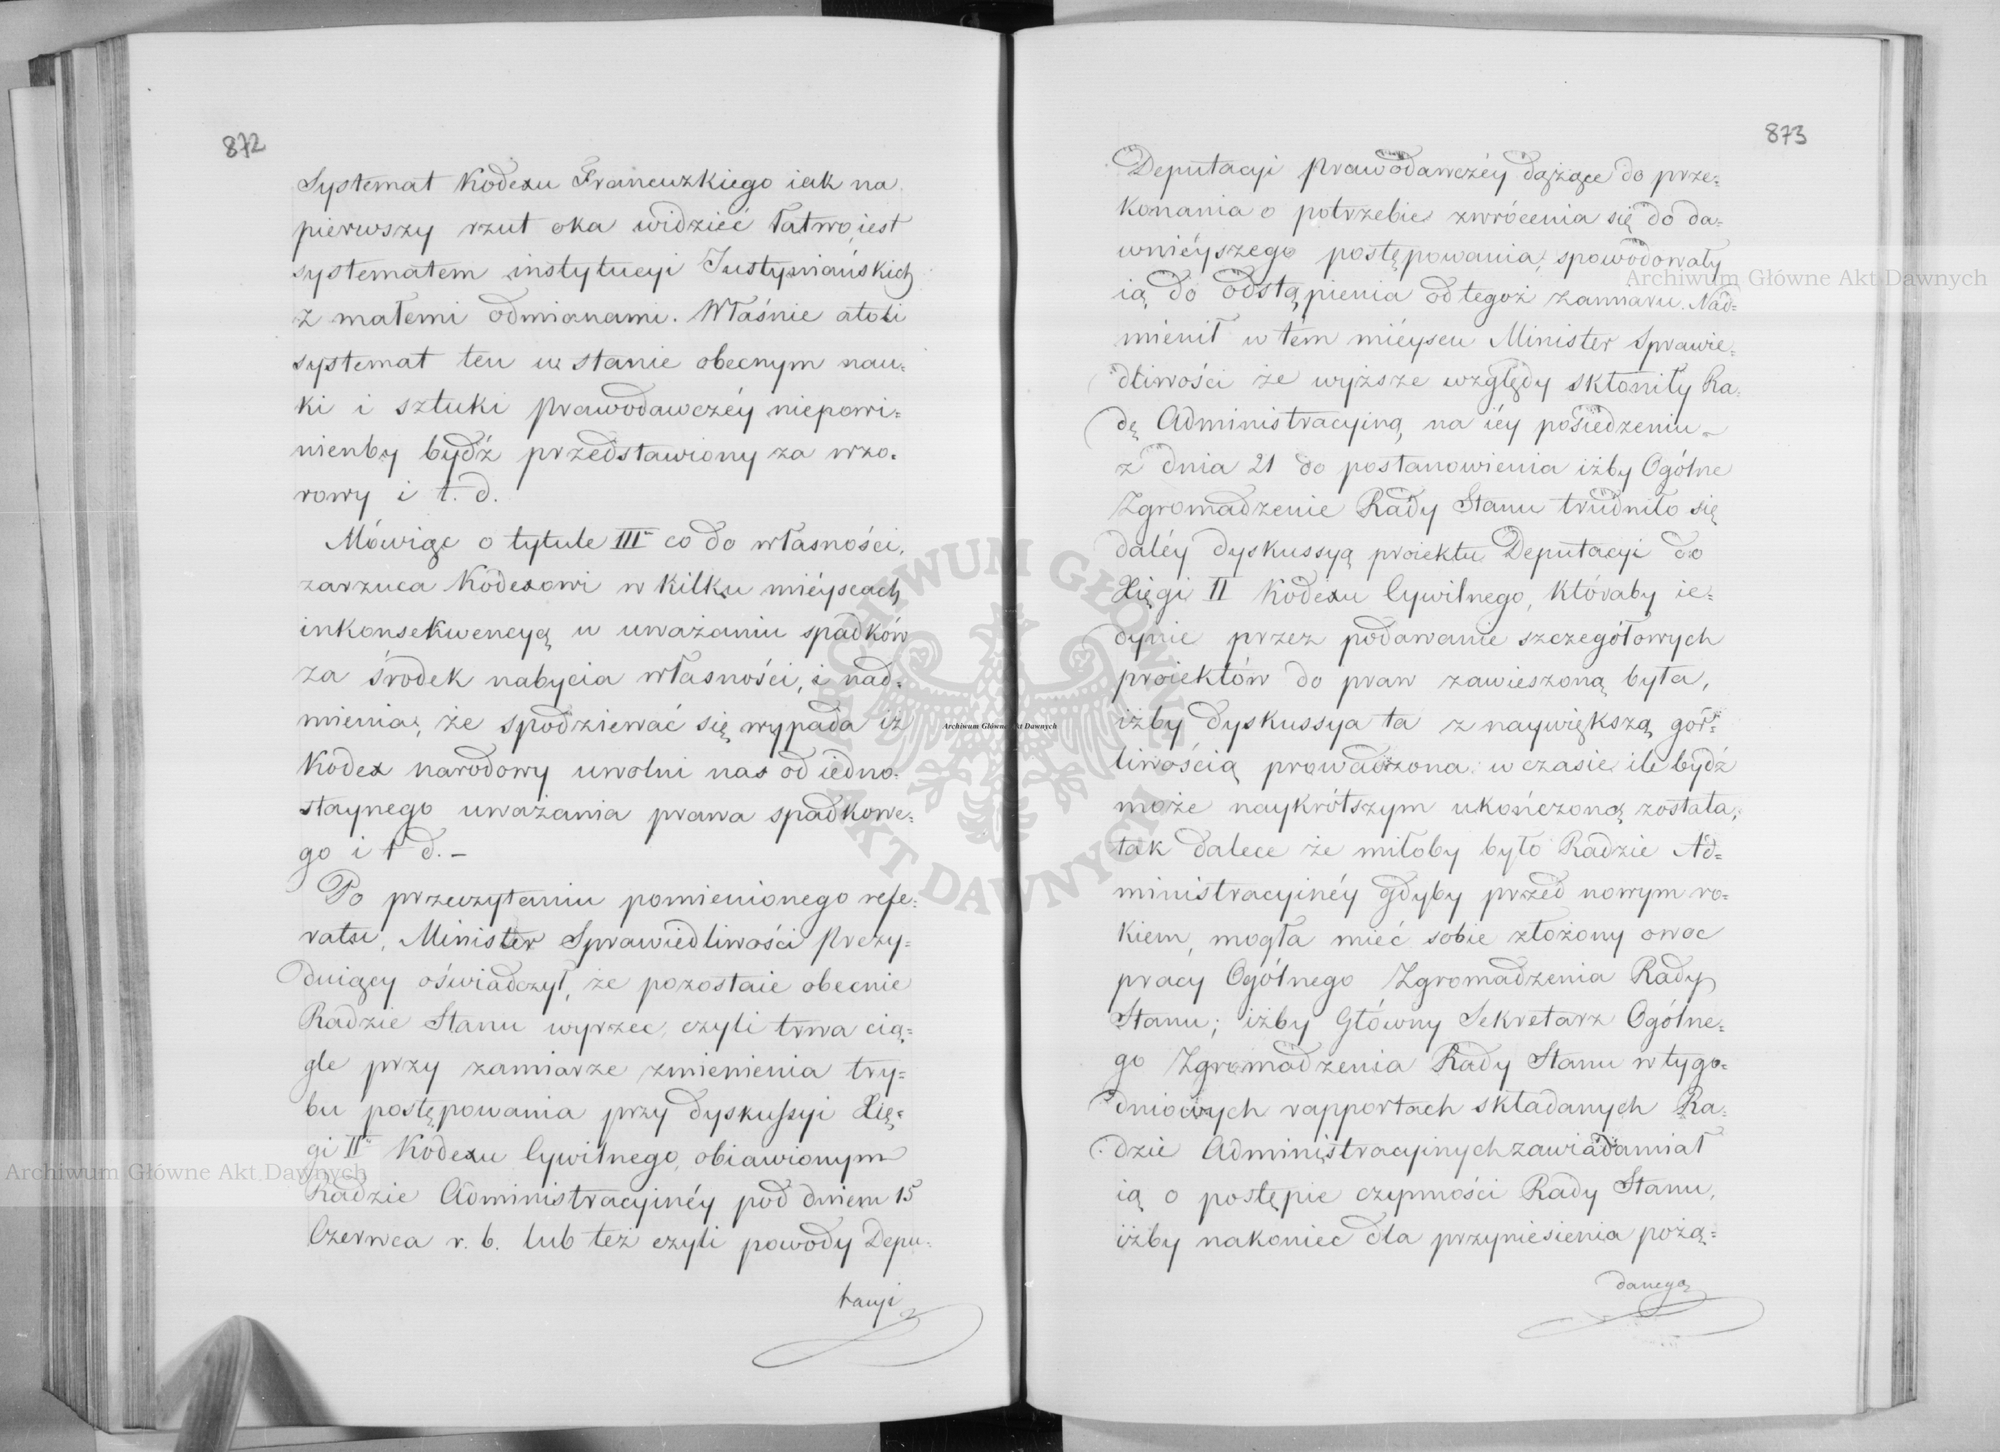 872
Systemat Kodexu Francuzkiego iak na
pierwszy rzut oka widzieć łatwo, iest
systematem instytucyi Justyniańskich
z małemi odmianami. Właśnie atoli
systemat ten w stanie obecnym nau-
ki i sztuki prawodawczéy niepowi-
nienby bydź przedstawiony za wzo-
rowy i t. d.
Mówiąc o tytule III co do własności,
zarzuca Kodexowi w kilku mieyscach
inkonsekwencyą w uważaniu spadków
za środek nabycia własności, i nad-
mienia, że spodziewać się wypada iż
Kodex narodowy uwolni nas od iedno-
staynego uważania prawa spadkowe-
go i t d. –
Po przeczytaniu pomienionego refe-
ratu, Minister Sprawiedliwości Prezy-
duiący oświadczył, że pozostaie obecnie
Radzie Stanu wyrzec, czyli trwa cią-
gle przy zamiarze zmienienia try-
bu postępowania przy dyskussyi Xię-
gi II Kodexu Cywilnego, obiawionym
Radzie Administracyinéy pod dniem 15
Czerwca r. b. lub też czyli powody Depu-
tacyi
873
Deputacyi Prawodawczéy dążące do prze-
konania o potrzebie zwrócenia się do da-
wniéyszego postępowania, spowodowały
ią do odstąpienia od tegoż zamiaru. Nad-
mienił w tém mieyscu Minister Sprawie-
dliwości że wyższe względy skłoniły Ra-
dę Administracyiną na iéy posiedzeniu
z dnia 21 do postanowienia iżby Ogólne
Zgromadzenie Rady Stanu trudniło się
daléy dyskussyą proiektu Deputacyi do
Xięgi II Kodexu Cywilnego, któraby ie-
dynie przez podawanie szczegółowych
proiektów do praw zawieszoną była,
iżby dyskussya ta z naywiększą gor-
liwością prowadzona w czasie ile bydź
może naykrótszym ukończoną została,
tak dalece że miłoby było Radzie Ad-
ministracyinéy gdyby przed nowym ro-
kiem, mogła mieć sobie złożony owoc
pracy Ogólnego Zgromadzenia Rady
Stanu; iżby Główny Sekretarz Ogólne-
go Zgromadzenia Rady Stanu w tygo-
dniowych rapportach składanych Ra-
dzie Administracyinych zawiadamiał
ią o postępie czynności Rady Stanu,
iżby nakoniec dla przyniesienia pożą-
danego
Archiwum Główne Akt Dawnych
Archiwum Główne Akt Dawnych
Archiwum Główne Akt Dawnych
ARCHIWUM GŁÓWNE
AKT DAWNYCH